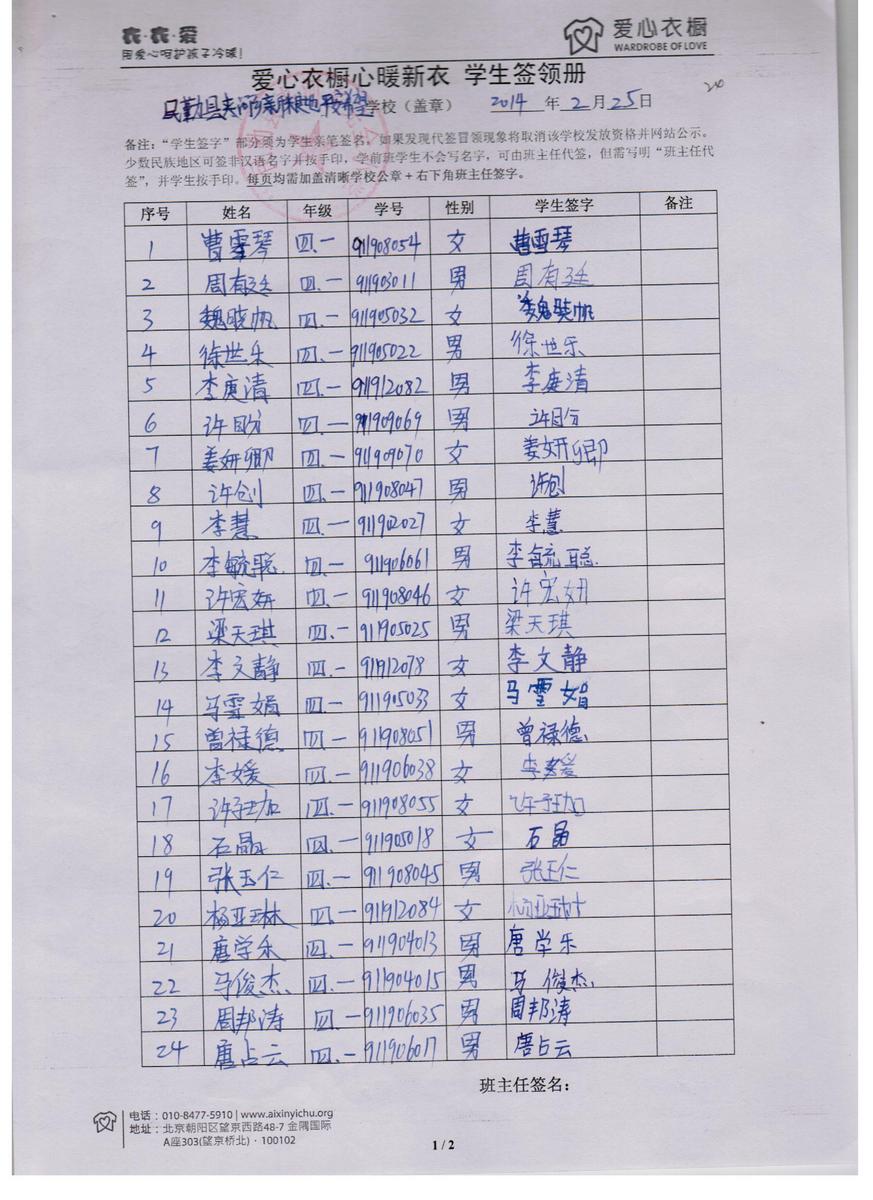 衣·衣·爱
用爱心呵护孩子冷暖!
爱心衣橱
WARDROBE OF LOVE
爱心衣橱心暖新衣 学生签领册
学校（盖章） 2014 年 2 月 25 日
20
备注：“学生签字”部分须为学生亲笔签名，如果发现代签冒领现象将取消该学校发放资格并网站公示。
少数民族地区可签非汉语名字并按手印，学前班学生不会写名字，可由班主任代签，但需写明“班主任代
签”，并学生按手印。每页均需加盖清晰学校公章+右下角班主任签字。
序号 姓名 年级 学号 性别 学生签字 备注
1 曹雪琴 四.一 911908054 女 曹雪琴
2 周有廷 四.一 911903011 男 周有廷
3 魏晓帆 四.一 911905032 女 魏晓帆
4 徐世乐 四.一 911905022 男 徐世乐
5 李庚清 四.一 911912082 男 李庚清
6 许 四.一 911909069 男 许
7 姜妍卿 四.一 911909070 女 姜妍卿
8 许创 四.一 911908047 男 许创
9 李慧 四.一 911902027 女 李慧
10 李毓聪 四.一 911906061 男 李毓聪
11 许宏妍 四.一 911908046 女 许宏妍
12 梁天琪 四.一 911905025 男 梁天琪
13 李文静 四.一 911912078 女 李文静
14 马雪娟 四.一 911905033 女 马雪娟
15 曾禄德 四.一 911908051 男 曾禄德
16 李媛 四.一 911906038 女 李媛
17 许珈 四.一 911908055 女 许珈
18 石晶 四.一 911905018 女 石晶
19 张玉仁 四.一 911908045 男 张玉仁
20 杨亚琳 四.一 911912084 女 杨亚琳
21 唐学乐 四.一 911904013 男 唐学乐
22 马俊杰 四.一 911904015 男 马俊杰
23 周邦涛 四.一 911906035 男 周邦涛
24 唐占云 四.一 911906017 男 唐占云
班主任签名：
电话：010-8477-5910 | www.aixinyichu.org
地址：北京朝阳区望京西路48-7 金隅国际
A座303(望京桥北)·100102
1 / 2